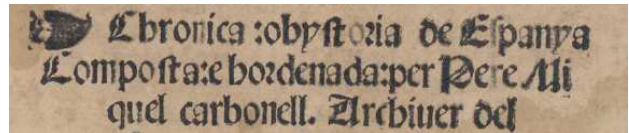 Chronica :o hystoria de Espanya
Composta:e hordenada:per Pere Mi
quel carbonell. Archiuer del